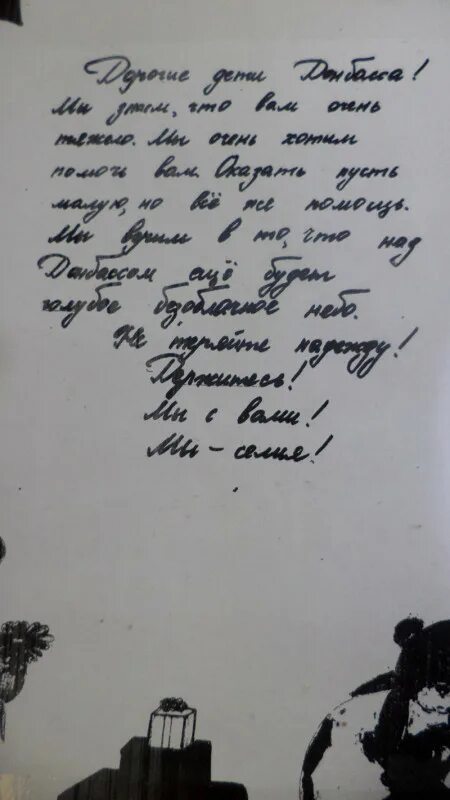 Дорогие дети Донбасса!
Мы знаем, что вам очень
тяжело. Мы очень хотим
помочь вам. Оказать пусть
малую, но всё же помощь.
Мы верим в то, что над
Донбассом ещё будет
голубое безоблачное небо.
Не теряйте надежду!
Держитесь!
Мы с вами!
Мы – семья!